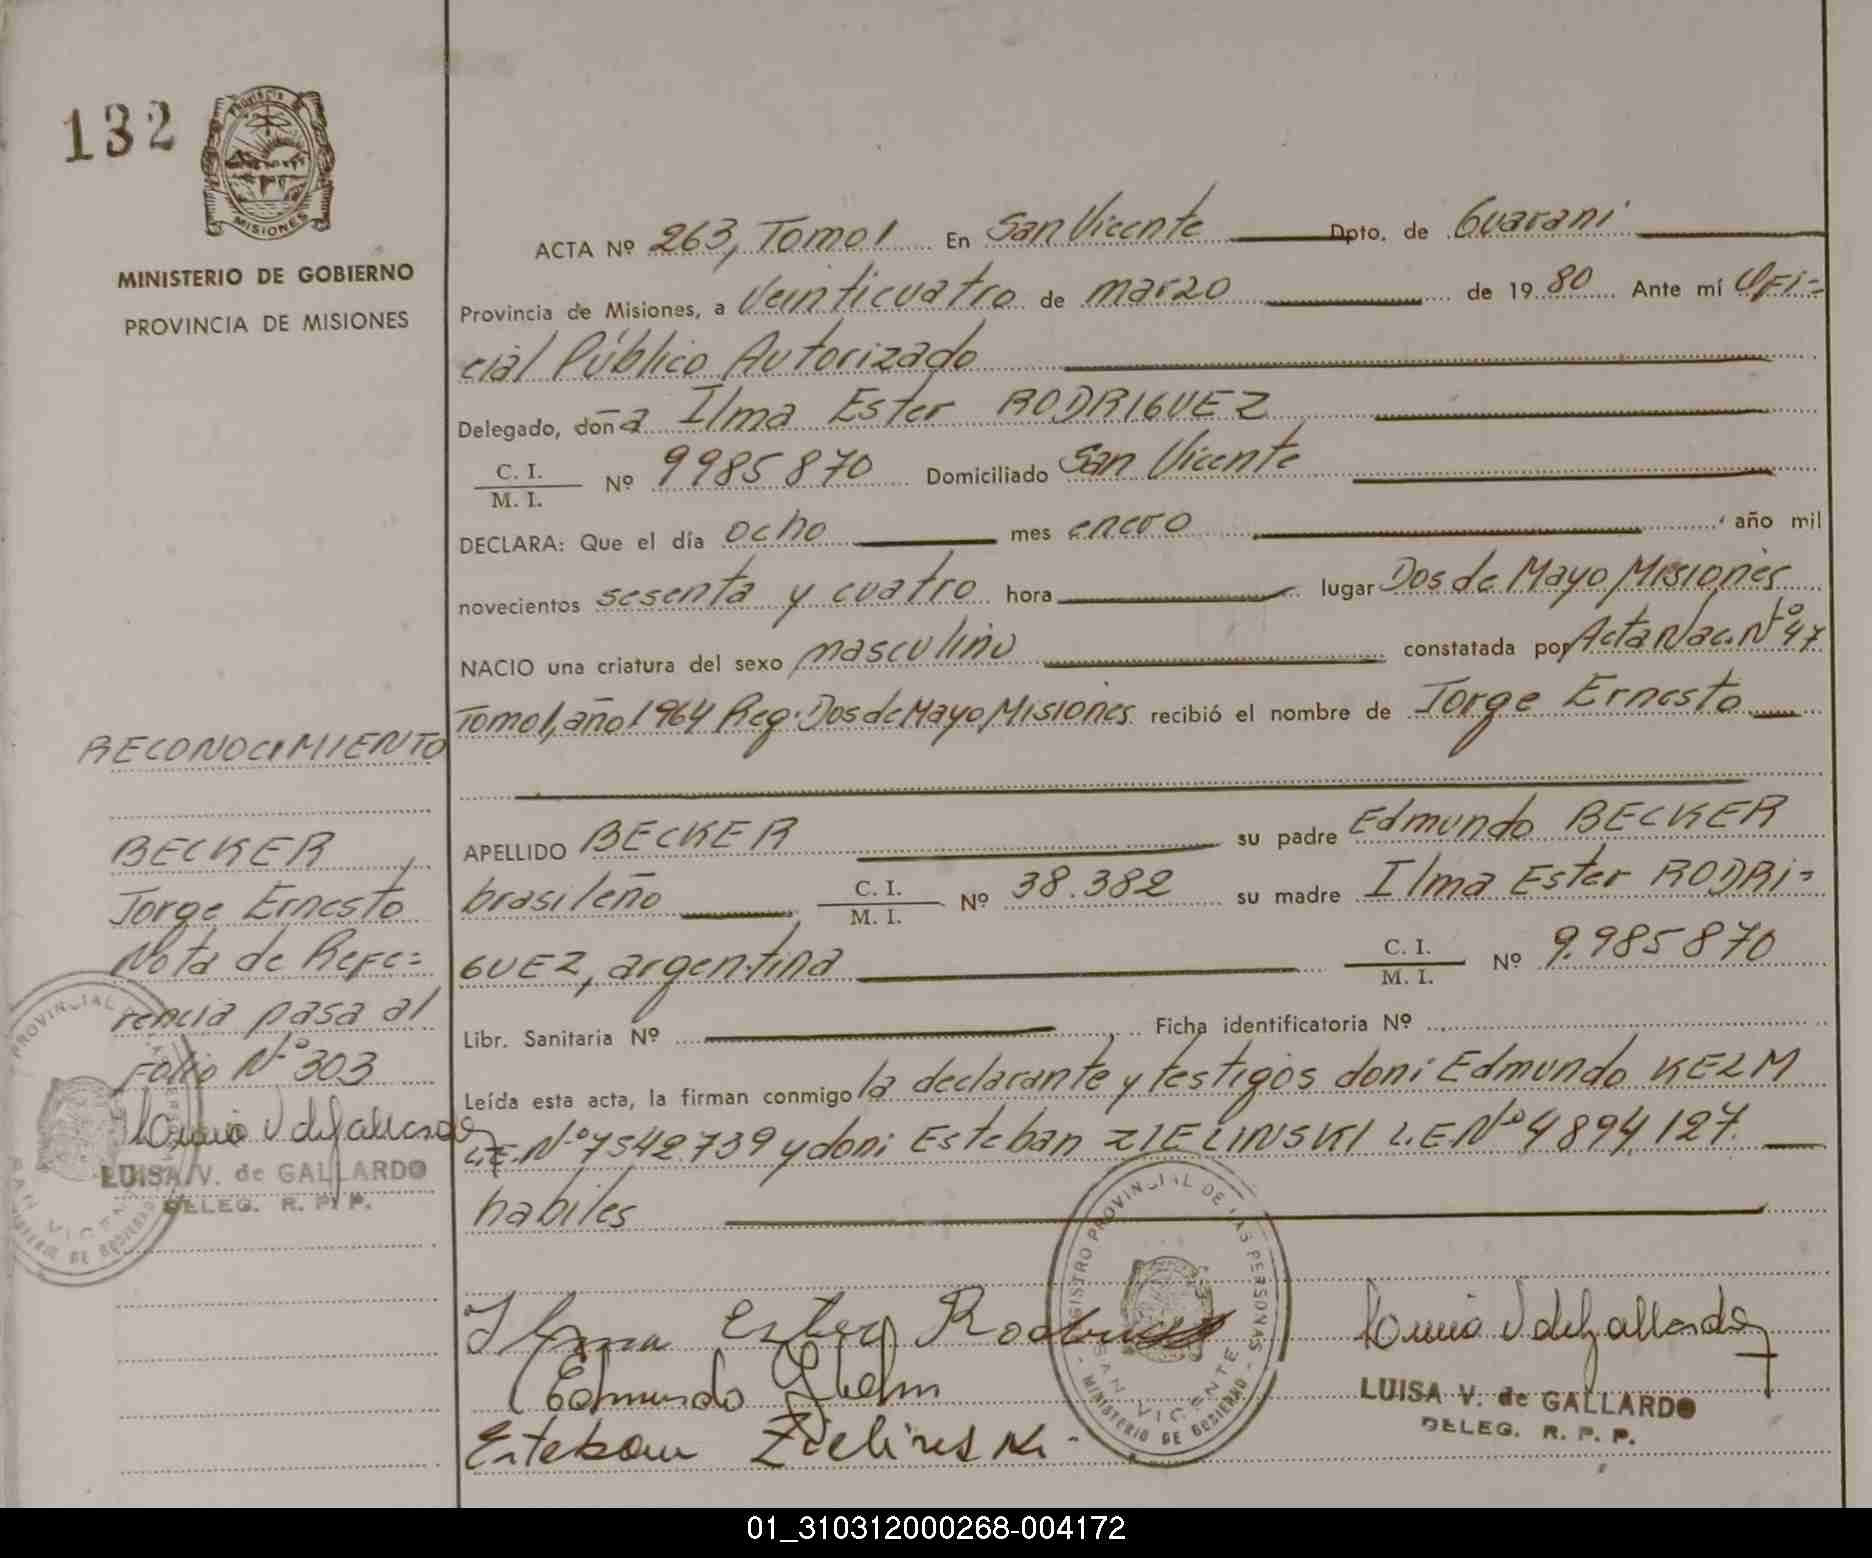 132
PROVINCIA DE
MISIONES
MINISTERIO DE GOBIERNO
PROVINCIA DE MISIONES
ACTA Nº 263, Tomo 1 En San Vicente Dpto. de Guaraní
Provincia de Misiones, a Veinticuatro de marzo de 1980 Ante mí Ofi=
cial Público Autorizado
Delegado, doña Ilma Ester RODRIGUEZ
C. I.
M. I. Nº 9985870 Domiciliado San Vicente
DECLARA: Que el día ocho mes enero año mil
novecientos sesenta y cuatro hora lugar Dos de Mayo Misiones
NACIO una criatura del sexo masculino constatada por Acta Nac. Nº 47
Tomo 1, año 1964 Reg. Dos de Mayo, Misiones recibió el nombre de Jorge Ernesto
APELLIDO BECKER su padre Edmundo BECKER
brasileño C. I.
M. I. Nº 38.382 su madre Ilma Ester RODRI=
GUEZ, argentina C. I.
M. I. Nº 9.985870
Libr. Sanitaria Nº Ficha identificatoria Nº
Leída esta acta, la firman conmigo la declarante y testigos don: Edmundo KELM
L.E. Nº 7542739 y don: Esteban ZIELINSKI L.E. Nº 4894.127.
habiles
RECONOCIMIENTO
BECKER
Jorge Ernesto
Nota de Refe=
rencia pasa al
Folio Nº 303
LUISA V. de GALLARDO
DELEG. R. P. P.
Ilma Ester Rodriguez
Edmundo Khelm
Esteban Zielinski
REGISTRO PROVINCIAL DE LAS PERSONAS
SAN VICENTE
MINISTERIO DE GOBIERNO
LUISA V. de GALLARDO
DELEG. R. P. P.
01_310312000268-004172